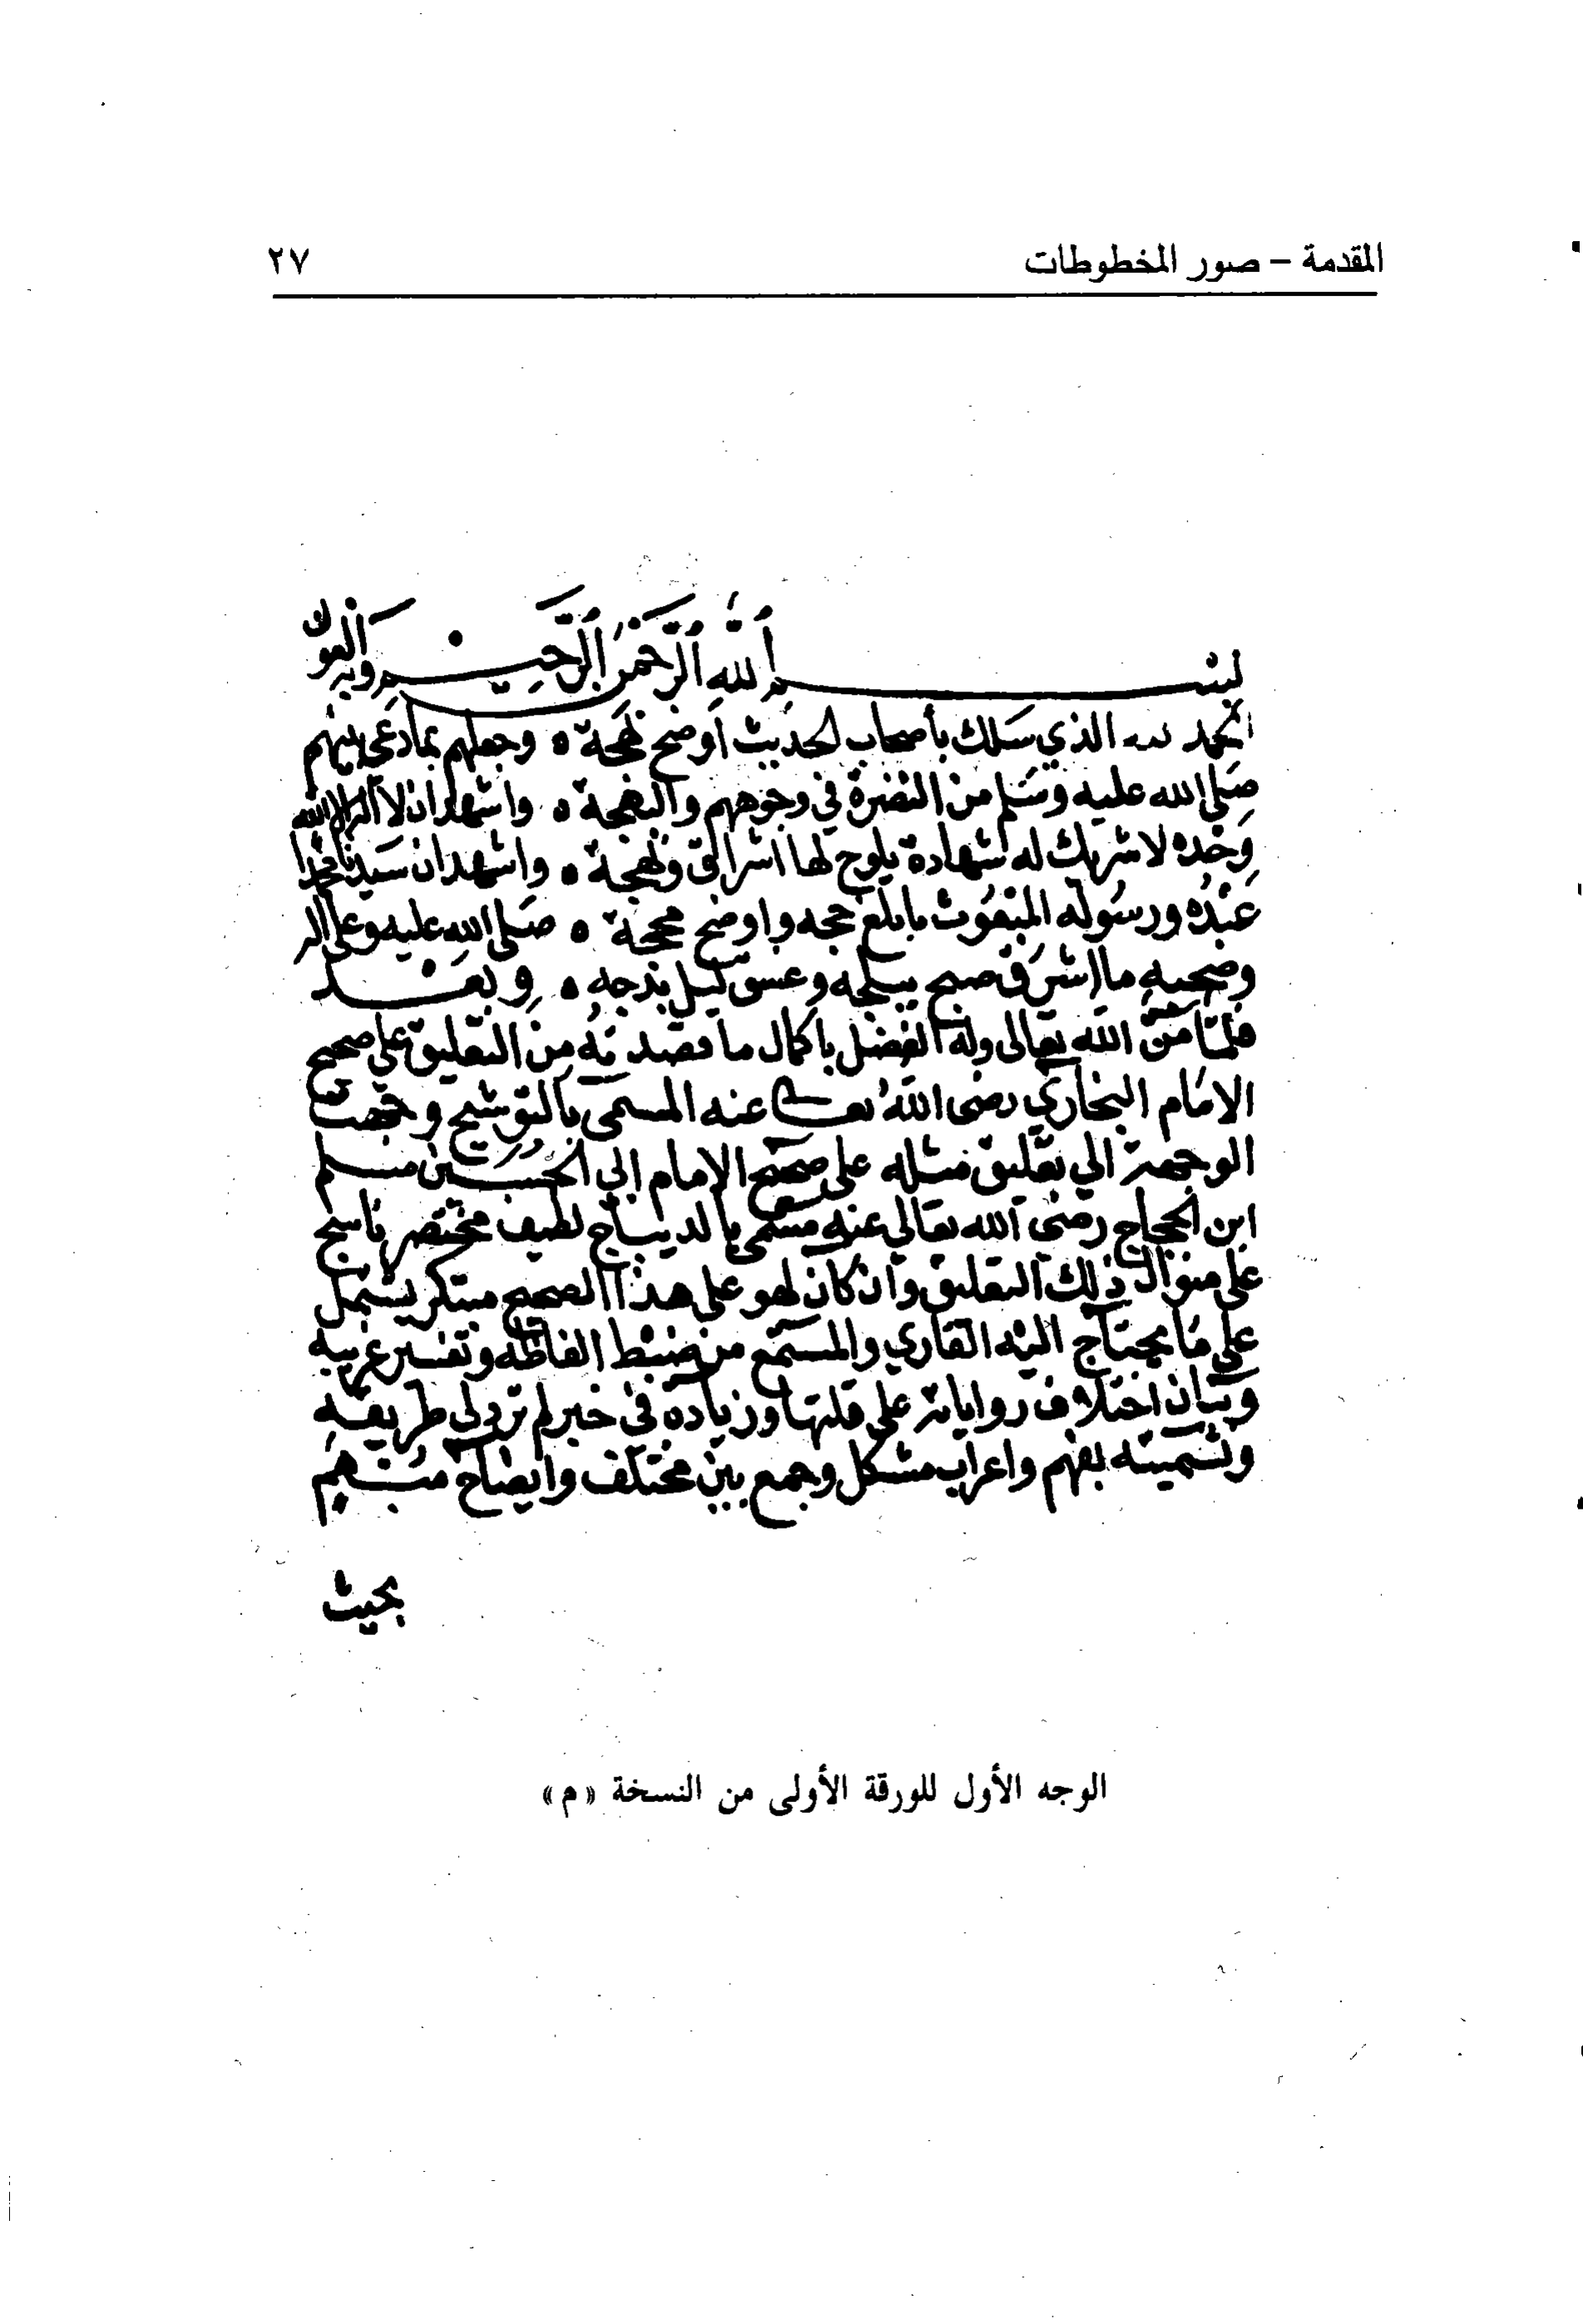 المقدمة – صور المخطوطات ٢٧
بسم الله الرحمن الرحيم وبه العون
الحمد لله الذي سلك بأصحاب الحديث أوضح نهجة ٥ وجعلهم بما دعى نبيهم
صلى الله عليه وسلم من النضرة في وجوههم والبهجة ٥ واشهد ان لا اله الا الله
وحده لا شريك له شهادة يلوح لها اشراق وبهجة ٥ واشهد ان سيدنا محمدا
عبده ورسوله المبعوث بابلغ حجه واوضح محجة ٥ صلى الله عليه وعلى اله
وصحبه ما اشرق صبح ببلجه وعسق ليل بدجه ٥ وبعد
فلما من الله تعالى وله الفضل باكمال ما قصدته من التعليق على صحيح
الامام البخاري رضى الله تعالى عنه المسمى بالتوشيح وجهت
الوجهة الي تعليق مثله على صحيح الامام ابي الحسين مسلم
ابن الحجاج رضي الله تعالى عنه مسمى بالديباج لطيف مختصر ناسج
على منوال ذلك التعليق وان كان لهو على هذا الصحيح مبتكر يشتمل
على ما يحتاج اليه القاري والمستمع من ضبط الفاظه وتفسير غريبه
وبيان اختلاف رواياته على قلتها وزيادة في خبر لم ترد في طريقه
وتسمية بفهم واعراب مشكل وجمع بين مختلف وايضاح مبهم
بحيث
الوجه الأول للورقة الأولى من النسخة «م»